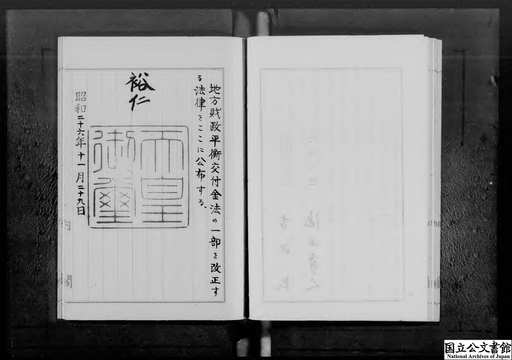 地方財政平衡交付金法の一部を改正す
る法律をここに公布する。
裕仁
天皇
御璽
昭和二十六年十一月二十九日
内閣
国立公文書館
National Archives of Japan